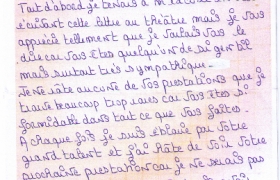 Tout d'abord je tenais à m'excuser
cette lettre au théâtre mais je vous
apprécie tellement que je voulais vous le
dire car vous êtes quelqu'un de si gentil
mais surtout très sympathique.
Je ne rate aucune de vos prestations que je
trouve beaucoup trop rares car vous êtes si
formidable dans tout ce que vous faites.
A chaque fois je suis éblouie par votre
grand talent et j'ai hâte de voir votre
prochaine prestation car je ne serais pas